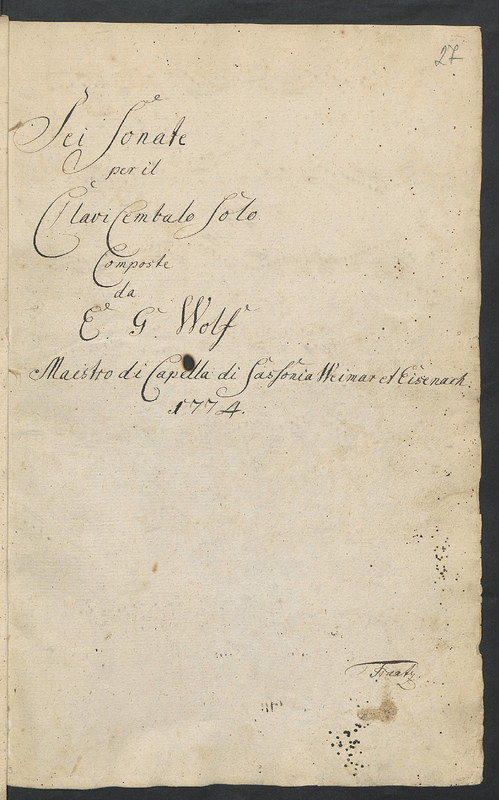 27
Sei Sonate
per il
Clavi Cembalo Solo.
Composte
da
E. G. Wolf
Maestro di Capella di Sassonia Weimar et Eisenach.
1774.